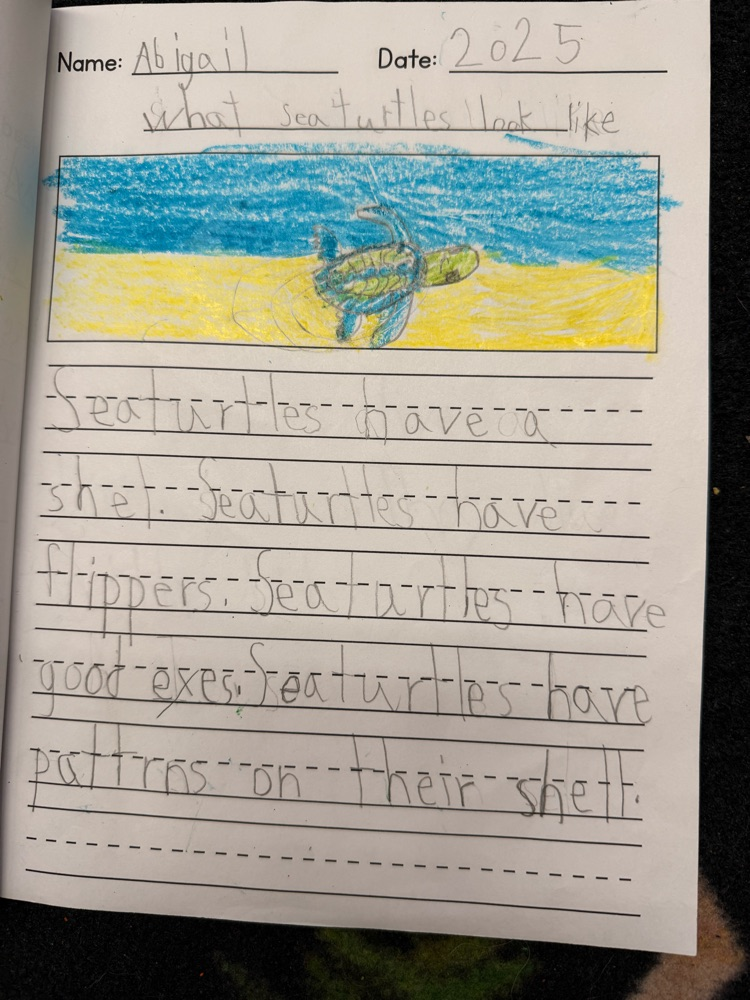 Name: Abigail Date: 2025
What seaturtles look like
Seaturtles have a
shel. Seaturtles have
flippers. Seaturtles have
good exes. Seaturtles have
pattrns on their shell.